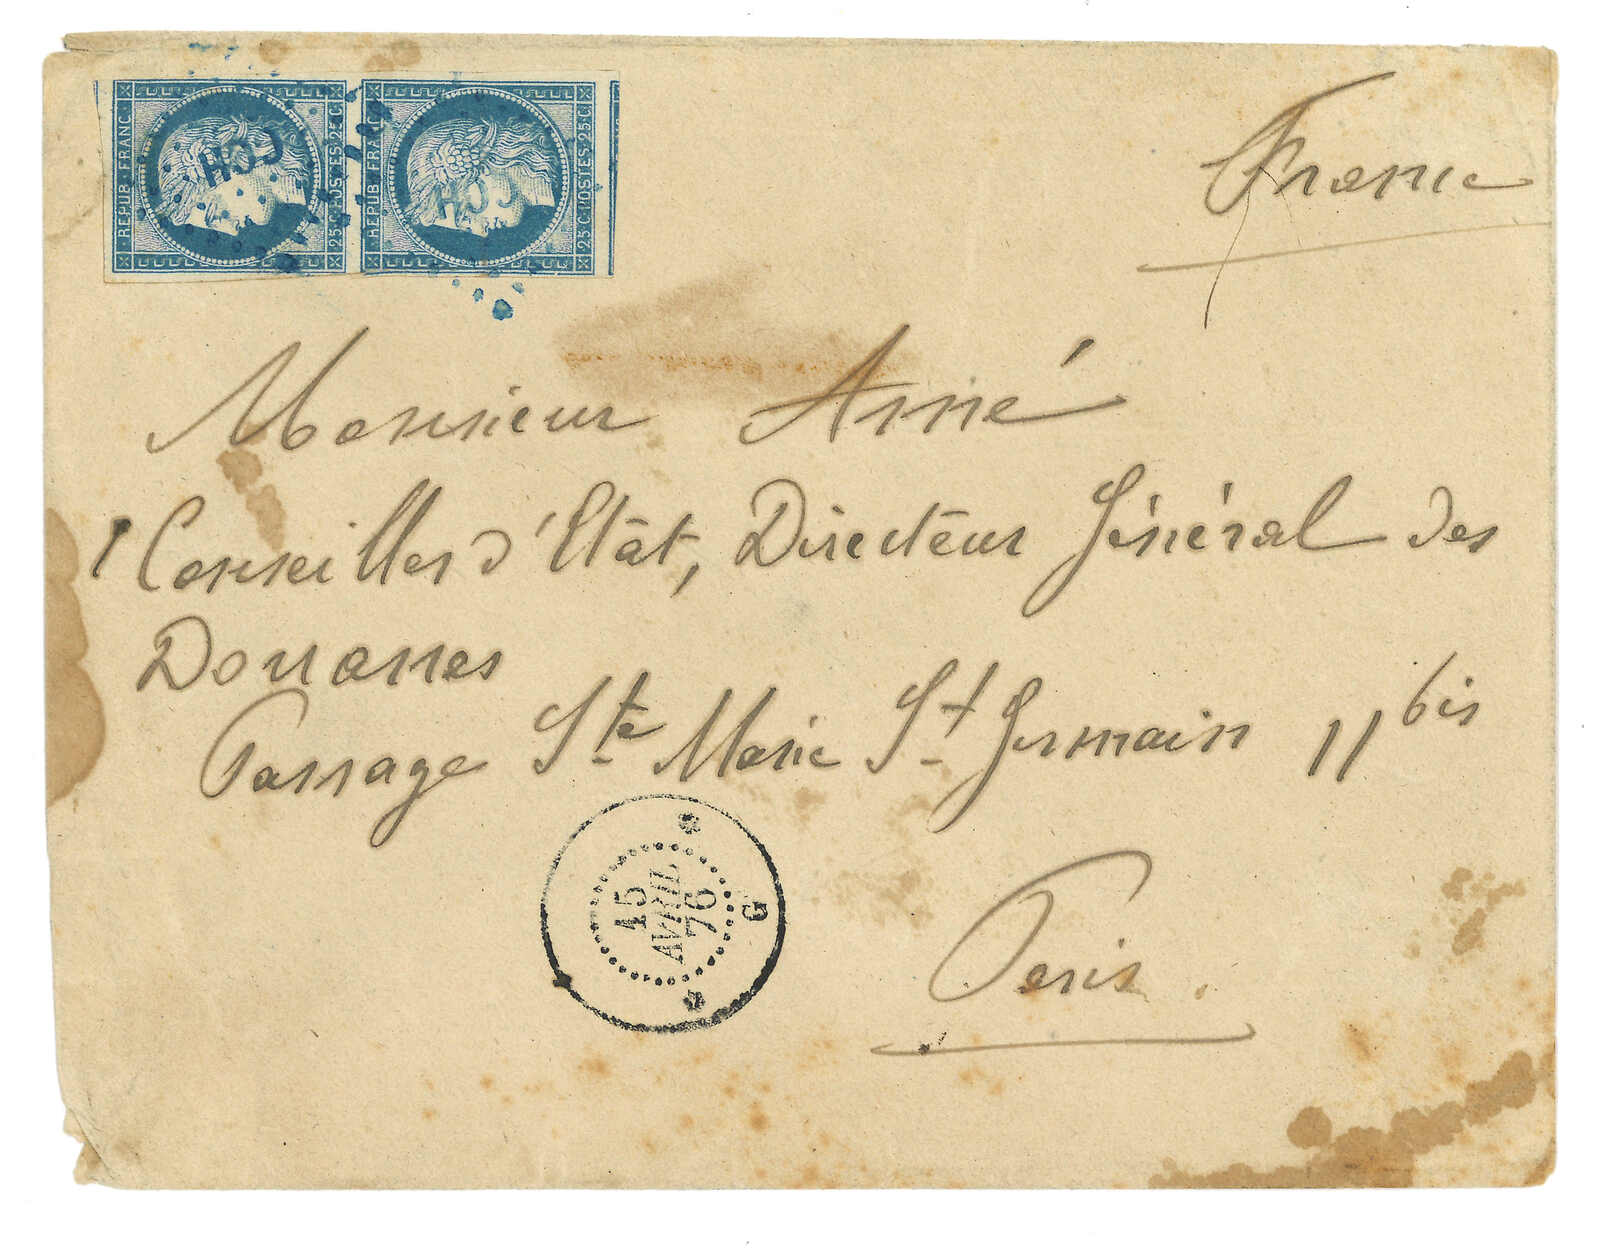 REPUB·FRANC· 25·C·POSTES·25·C· REPUB·FRANC· 25·C·POSTES·25·C·
CCH CCH
France
Monsieur Anné
Conseiller d'Etat, Directeur Général des
Douanes
Passage Ste Marie St Germain 11 bis
15
AVRIL
76
G
Paris.